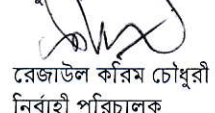 রেজাউল করিম চৌধুরী
নির্বাহী পরিচালক